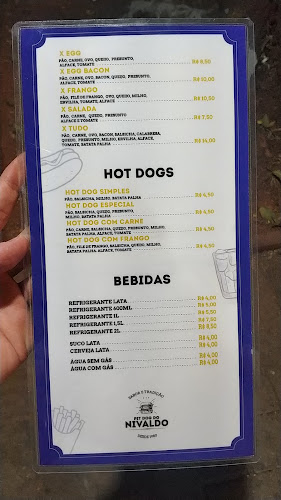 X EGG
PÃO, CARNE, OVO, QUEIJO, PRESUNTO,
ALFACE, TOMATE R$ 8,50
X EGG BACON
PÃO, CARNE, OVO, BACON, QUEIJO, PRESUNTO,
ALFACE, TOMATE R$ 10,00
X FRANGO
PÃO, FILÉ DE FRANGO, OVO, QUEIJO, MILHO,
ERVILHA, TOMATE, ALFACE R$ 10,50
X SALADA
PÃO, CARNE, QUEIJO, PRESUNTO,
ALFACE E TOMATE R$ 7,50
X TUDO
PÃO, CARNE, OVO, BACON, SALSICHA, CALABRESA,
QUEIJO, PRESUNTO, MILHO, ERVILHA, ALFACE,
TOMATE, BATATA PALHA R$ 14,00
HOT DOGS
HOT DOG SIMPLES
PÃO, SALSICHA, MILHO, BATATA PALHA R$ 4,50
HOT DOG ESPECIAL
PÃO, SALSICHA, QUEIJO, PRESUNTO,
MILHO, BATATA PALHA R$ 4,50
HOT DOG COM CARNE
PÃO, CARNE, SALSICHA, QUEIJO, PRESUNTO, MILHO,
BATATA PALHA, ALFACE, TOMATE R$ 4,50
HOT DOG COM FRANGO
PÃO, FILÉ DE FRANGO, SALSICHA, QUEIJO, MILHO,
BATATA PALHA, ALFACE, TOMATE R$ 4,50
BEBIDAS
REFRIGERANTE LATA R$ 4,00
REFRIGERANTE 600ML R$ 5,00
REFRIGERANTE 1L R$ 5,50
REFRIGERANTE 1,5L R$ 7,50
REFRIGERANTE 2L R$ 8,50
SUCO LATA R$ 4,00
CERVEJA LATA R$ 4,00
ÁGUA SEM GÁS R$ 4,00
ÁGUA COM GÁS R$ 4,00
SABOR E TRADIÇÃO
PIT DOG DO
NIVALDO
DESDE 1987